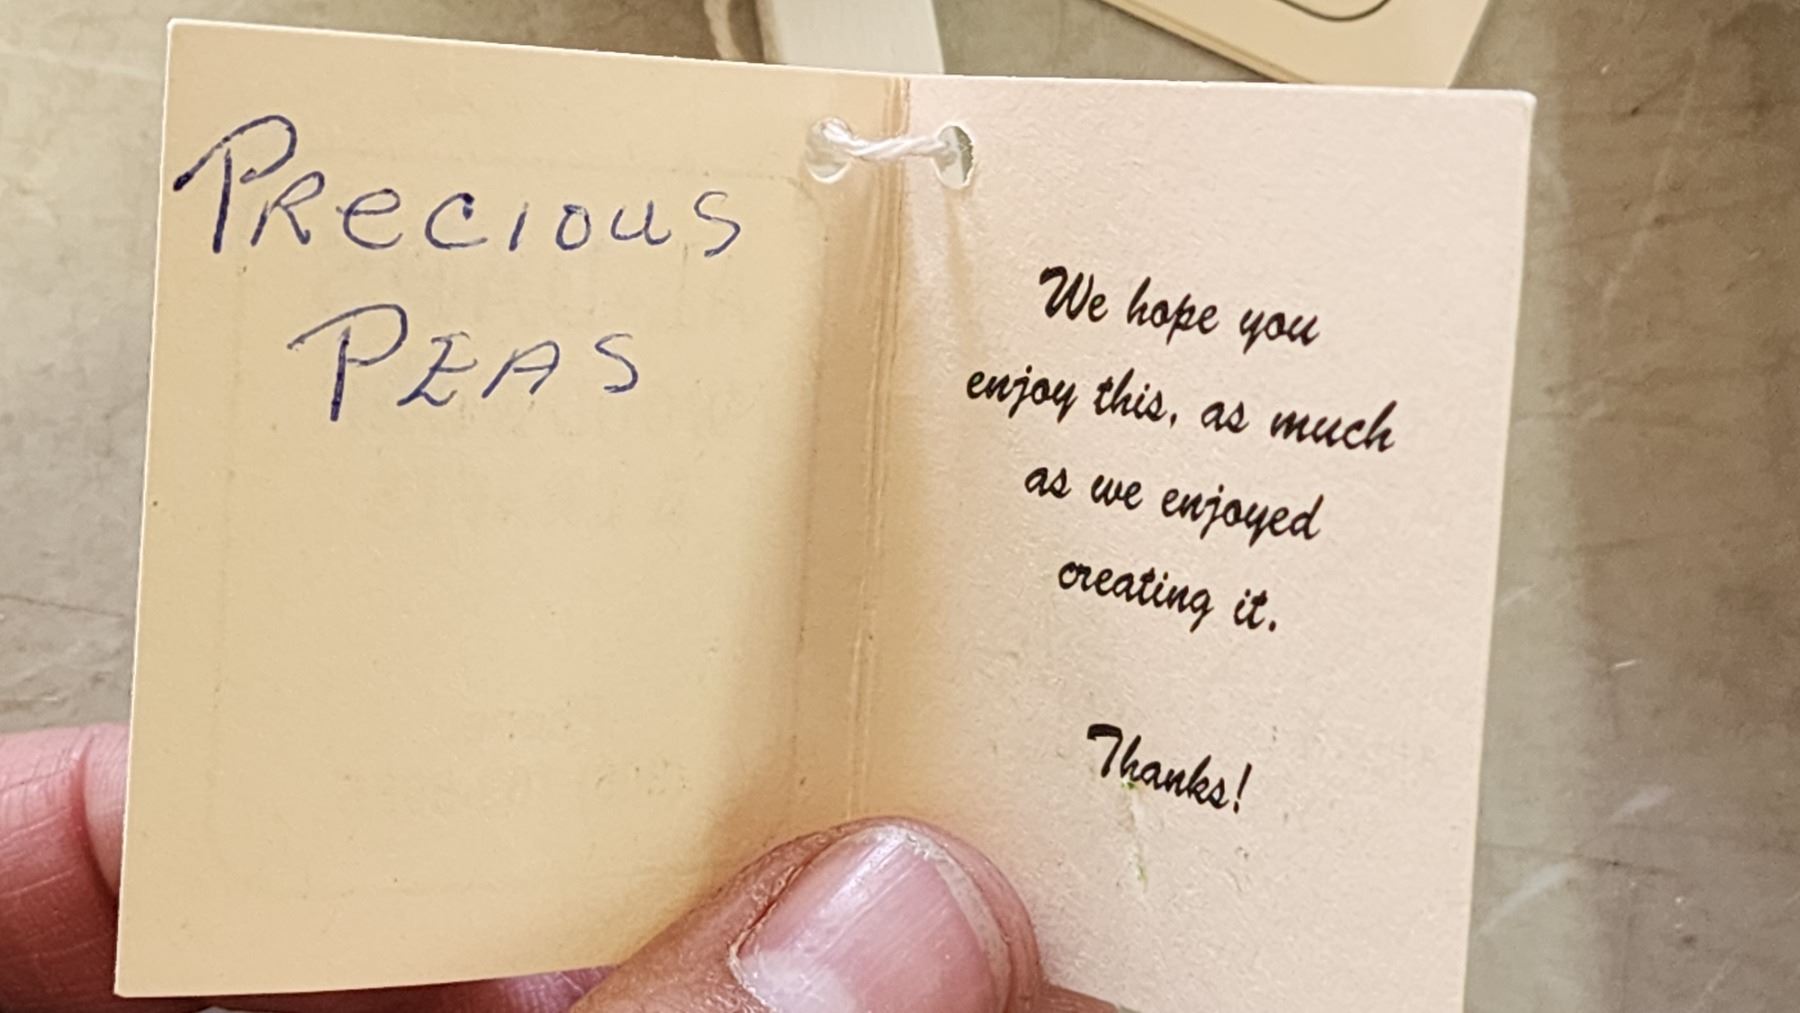 PRecious
PEAS
We hope you
enjoy this, as much
as we enjoyed
creating it.
Thanks!